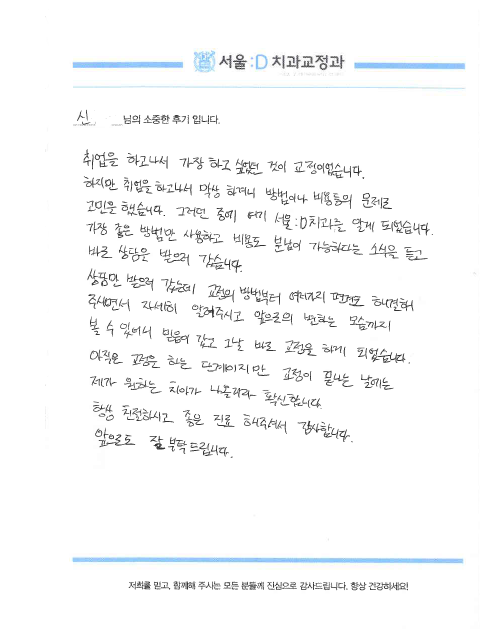 서울:D 치과교정과
신 님의 소중한 후기 입니다.
취업을 하고나서 가장 하고 싶었던 것이 교정이었습니다.
하지만 취업을 하고나서 막상 하려니 방법이나 비용등의 문제로
고민을 했습니다. 그러던 중에 여기 서울:D치과를 알게 되었습니다.
가장 좋은 방법만 사용하고 비용도 분납이 가능하다는 소식을 듣고
바로 상담을 받으러 갔습니다.
상담만 받으러 갔는데 교정의 방법부터 여러가지 편견도 해결해
주시면서 자세히 알려주시고 앞으로의 변하는 모습까지
볼 수 있어서 믿음이 갔고 그날 바로 교정을 하게 되었습니다.
아직은 교정을 하는 단계이지만 교정이 끝나는 날에는
제가 원하는 치아가 나올거라 확신합니다.
항상 친절하시고 좋은 진료 해주셔서 감사합니다.
앞으로도 잘 부탁드립니다.
저희를 믿고, 함께해 주시는 모든 분들께 진심으로 감사드립니다. 항상 건강하세요!